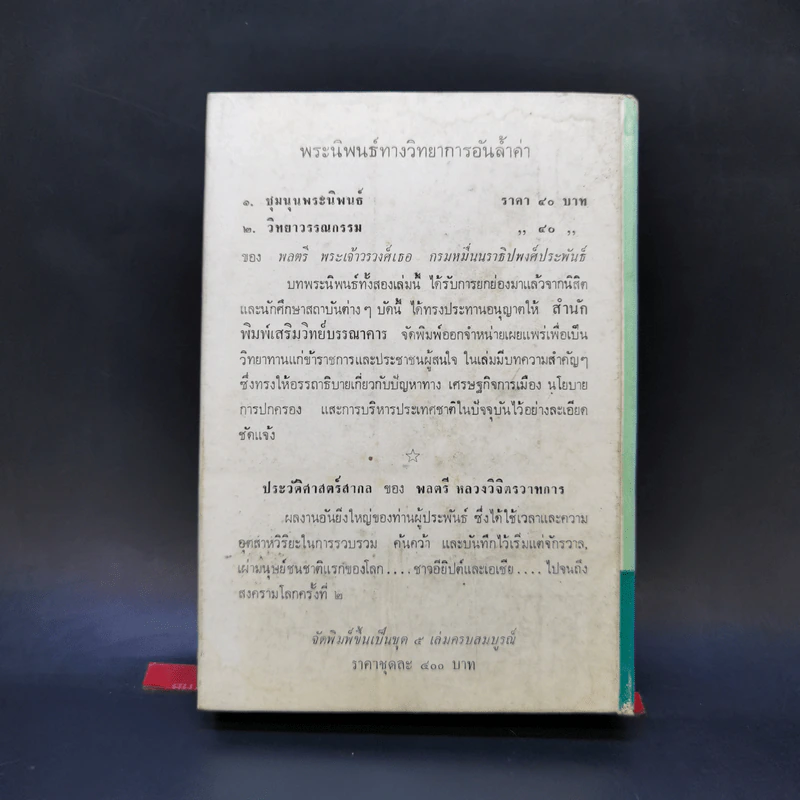 พระนิพนธ์ทางวิทยาการอันล้ำค่า
๑. ชุมนุมพระนิพนธ์ ราคา ๔๐ บาท
๒. วิทยาวรรณกรรม ,, ๔๐ ,,
ของ พลตรี พระเจ้าวรวงศ์เธอ กรมหมื่นนราธิปพงศ์ประพันธ์
บทพระนิพนธ์ทั้งสองเล่มนี้ ได้รับการยกย่องมาแล้วจากนิสิต
และนักศึกษาสถาบันต่าง ๆ บัดนี้ ได้ทรงประทานอนุญาตให้ สำนัก
พิมพ์เสริมวิทย์บรรณาคาร จัดพิมพ์ออกจำหน่ายเผยแพร่เพื่อเป็น
วิทยาทานแก่ข้าราชการและประชาชนผู้สนใจ ในเล่มมีบทความสำคัญๆ
ซึ่งทรงให้อรรถาธิบายเกี่ยวกับปัญหาทาง เศรษฐกิจการเมือง นโยบาย
การปกครอง และการบริหารประเทศชาติในปัจจุบันไว้อย่างละเอียด
ชัดแจ้ง
ประวัติศาสตร์สากล ของ พลตรี หลวงวิจิตรวาทการ
ผลงานอันยิ่งใหญ่ของท่านผู้ประพันธ์ ซึ่งได้ใช้เวลาและความ
อุตสาหวิริยะในการรวบรวม ค้นคว้า และบันทึกไว้เริ่มแต่จักรวาล,
เผ่ามนุษย์ชนชาติแรกของโลก....ชาจอียิปต์และเอเซีย....ไปจนถึง
สงครามโลกครั้งที่ ๒
จัดพิมพ์ขึ้นเป็นชุด ๕ เล่มครบสมบูรณ์
ราคาชุดละ ๔๐๐ บาท